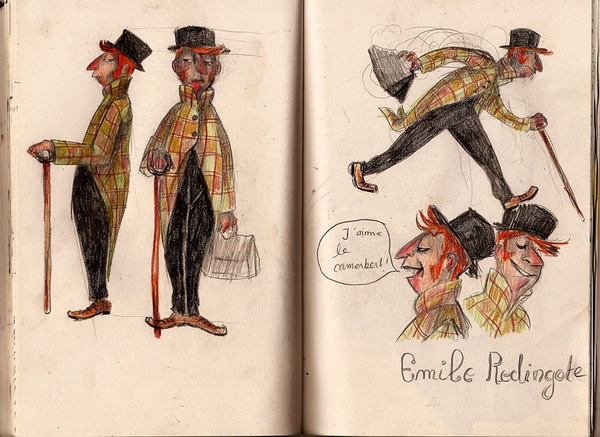 J'aime
le
camembert!
Emile Redingote